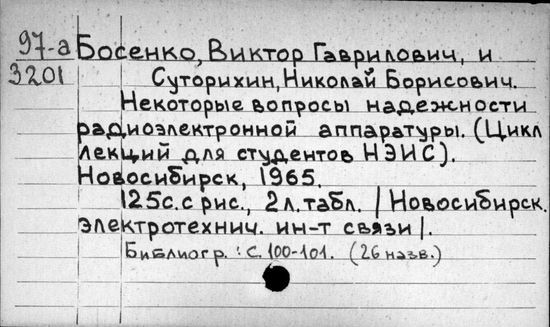 97-а Босенко, Виктор Гаврилович, и
3201 Суторихин, Николай Борисович.
Некоторые вопросы надежности
радиоэлектронной аппаратуры. (Цикл
лекций для студентов НЭИС).
Новосибирск, 1965.
125с. с рис., 2л. табл. | Новосибирск.
электротехнич. ин-т связи |.
Библиогр.: с. 100-101. (26 назв.)